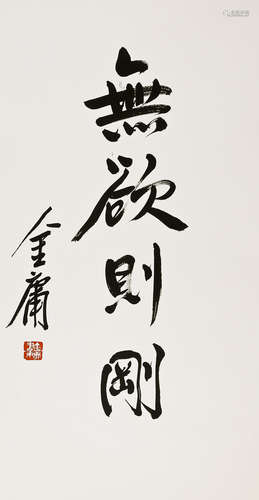 無欲則剛
金庸